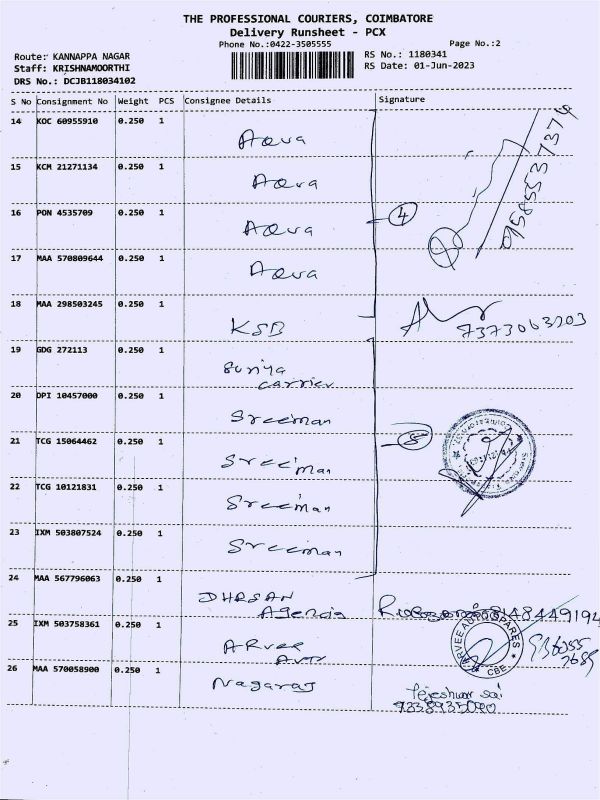 THE PROFESSIONAL COURIERS, COIMBATORE
Delivery Runsheet - PCX
Phone No.:0422-3505555
Page No.:2
Route: KANNAPPA NAGAR
RS No.: 1180341
Staff: KRISHNAMOORTHI
RS Date: 01-Jun-2023
DRS No.: DCJB118034102
S No Consignment No Weight PCS Consignee Details Signature
14 KOC 60955910 0.250 1
15 KCM 21271134 0.250 1
16 PON 4535709 0.250 1
4
17 MAA 570809644 0.250 1
18 MAA 298503245 0.250 1 KSB
19 GDG 272113 0.250 1 Suriya
carrier
20 DPI 10457000 0.250 1 Sreeiman
21 TCG 15064462 0.250 1 Sreeiman
22 TCG 10121831 0.250 1 Sreeiman
23 IXM 503807524 0.250 1 Sreeiman
24 MAA 567796063 0.250 1
25 IXM 503758361 0.250 1 ARvee
Auto
ARVEE AUTO SPARES
CBE
26 MAA 570058900 0.250 1 Nagaraj
Tejeshwar sai